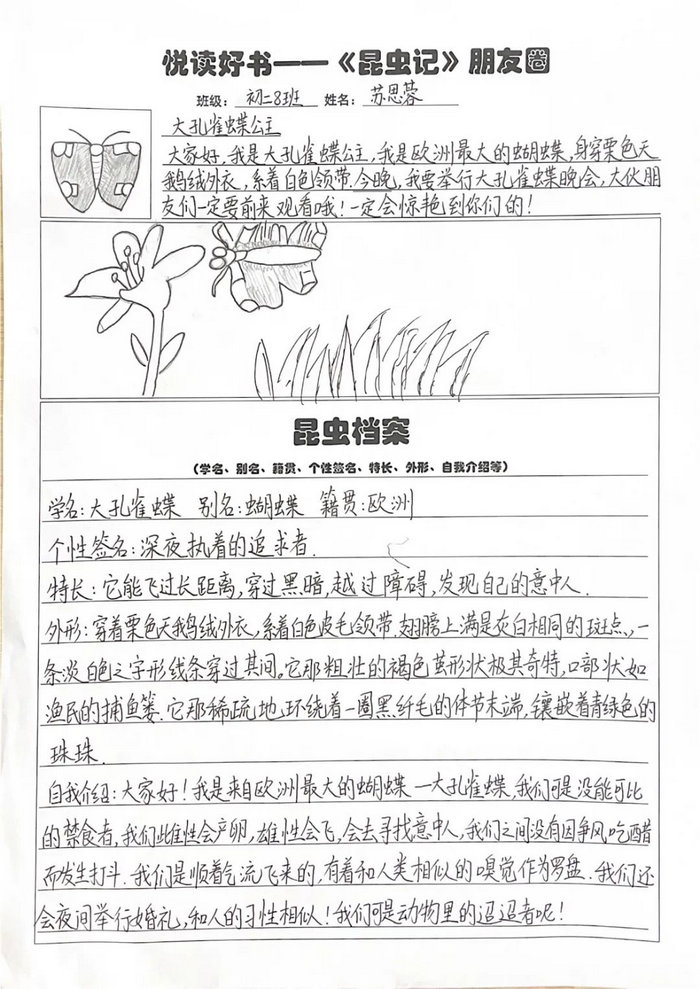 悦读好书——《昆虫记》朋友圈
班级：初二8班 姓名：苏思蓉
大孔雀蝶公主
大家好，我是大孔雀蝶公主，我是欧洲最大的蝴蝶，身穿栗色天
鹅绒外衣，系着白色领带。今晚，我要举行大孔雀蝶晚会，大伙朋
友们一定要前来观看哦！一定会惊艳到你们的！
昆虫档案
（学名、别名、籍贯、个性签名、特长、外形、自我介绍等）
学名：大孔雀蝶 别名：蝴蝶 籍贯：欧洲
个性签名：深夜执着的追求者.
特长：它能飞过长距离，穿过黑暗，越过障碍，发现自己的意中人.
外形：穿着栗色天鹅绒外衣，系着白色皮毛领带.翅膀上满是灰白相同的斑点，一
条淡白色之字形线条穿过其间。它那粗壮的褐色茧形状极其奇特，口部状如
渔民的捕鱼篓.它那稀疏地环绕着一圈黑纤毛的体节末端，镶嵌着青绿色的
珠珠.
自我介绍：大家好！我是来自欧洲最大的蝴蝶—大孔雀蝶，我们可是没能可比
的禁食者，我们雌性会产卵，雄性会飞，会去寻找意中人，我们之间没有因争风吃醋
而发生打斗.我们是顺着气流飞来的，有着和人类相似的嗅觉作为罗盘.我们还
会夜间举行婚礼，和人的习性相似！我们可是动物里的迢迢者呢！